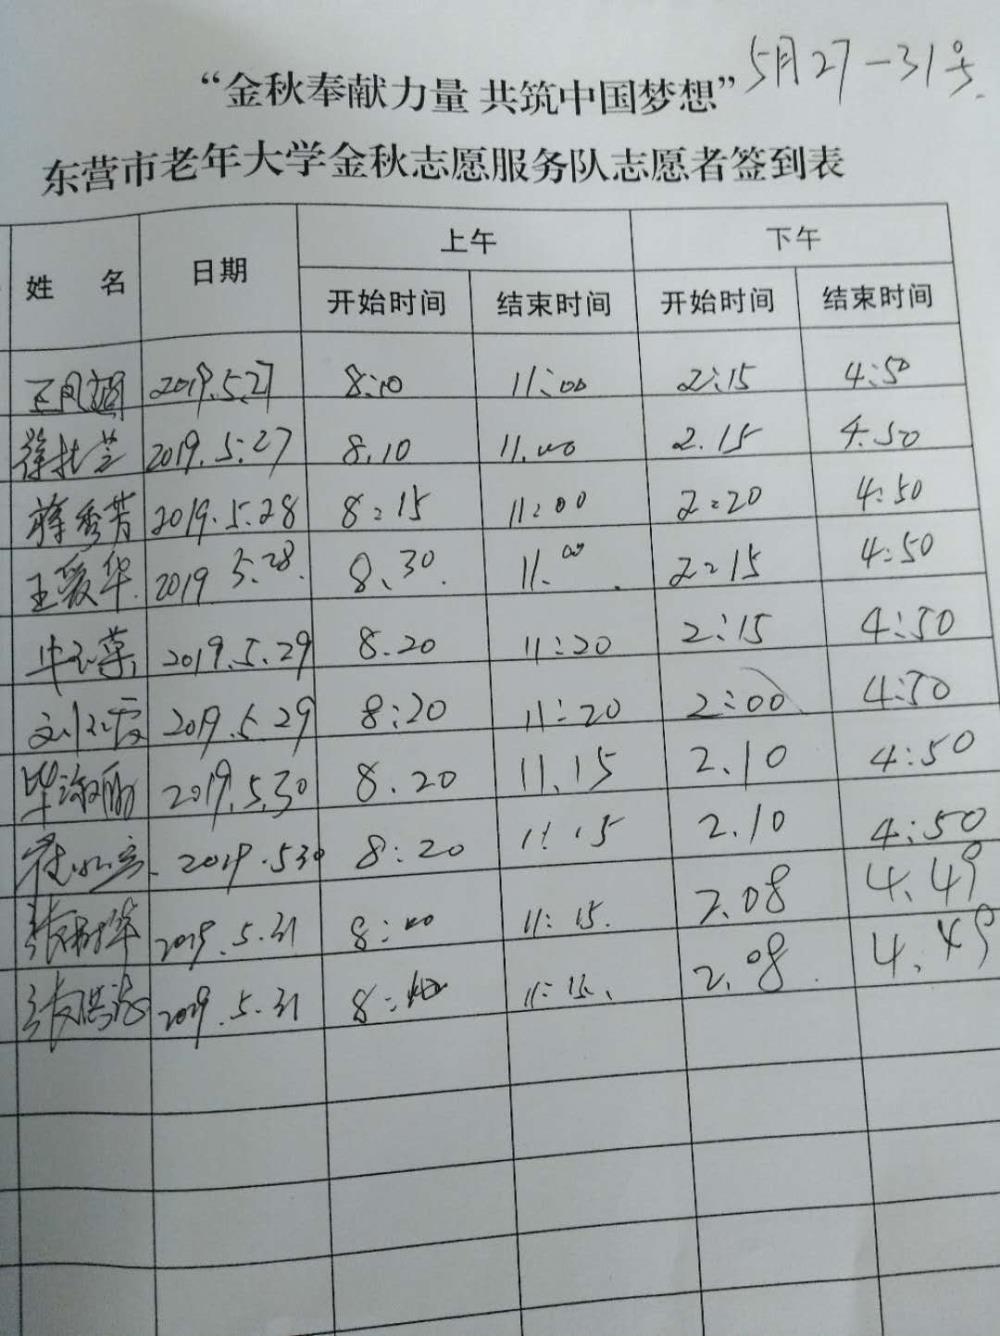 5月27-31号.
“金秋奉献力量 共筑中国梦想”
东营市老年大学金秋志愿服务队志愿者签到表
姓 名 日期 上午 下午
开始时间 结束时间 开始时间 结束时间
2019.5.27 8:10 11:00 2:15 4:50
2019.5.27 8.10 11.00 2.15 4.50
蒋秀芳 2019.5.28 8:15 11:00 2:20 4:50
王爱华 2019 5.28. 8.30. 11.00. 2:15 4:50
2019.5.29 8.20 11:20 2:15 4:50
2019.5.29 8:20 11:20 2:00 4:50
2019.5.30 8.20 11.15 2.10 4:50
2019.530 8:20 11.15 2.10 4:50
张树华 2019.5.31 8:00 11:15. 2.08 4.49
2019.5.31 8: 11:15. 2.08. 4.49